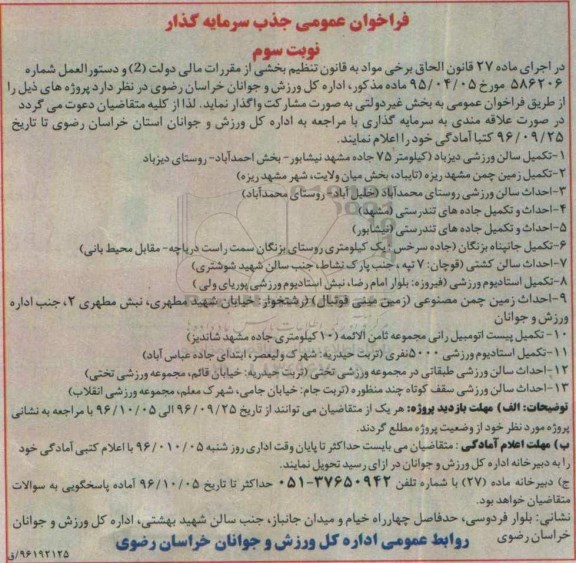 فراخوان عمومی جذب سرمایه گذار
نوبت سوم
در اجرای ماده ۲۷ قانون الحاق برخی مواد به قانون تنظیم بخشی از مقررات مالی دولت (2) و دستورالعمل شماره
۵۸۶۲۰۶ مورخ ۹۵/۰۴/۰۵ ماده مذکور، اداره کل ورزش و جوانان خراسان رضوی در نظر دارد پروژه های ذیل را
از طریق فراخوان عمومی به بخش غیردولتی به صورت مشارکت واگذار نماید. لذا از کلیه متقاضیان دعوت می گردد
در صورت علاقه مندی به سرمایه گذاری با مراجعه به اداره کل ورزش و جوانان استان خراسان رضوی تا تاریخ
۹۶/۰۹/۲۵ کتبا آمادگی خود را اعلام نمایند.
۱-تکمیل سالن ورزشی دیزباد (کیلومتر ۷۵ جاده مشهد نیشابور- بخش احمدآباد- روستای دیزباد
۲-تکمیل زمین چمن مشهد ریزه (تایباد، بخش میان ولایت، شهر مشهد ریزه)
۳-احداث سالن ورزشی روستای محمدآباد (خلیل آباد- روستای محمدآباد)
۴-احداث و تکمیل جاده های تندرستی (مشهد)
۵-احداث و تکمیل جاده های تندرستی (نیشابور)
۶-تکمیل جانپناه بزنگان (جاده سرخس؛ یک کیلومتری روستای بزنگان سمت راست دریاچه- مقابل محیط بانی)
۷-احداث سالن کشتی (قوچان: ۷ تپه، جنب پارک نشاط، جنب سالن شهید شوشتری)
۸-تکمیل استادیوم ورزشی (فیروزه: بلوار امام رضا، نبش استادیوم ورزشی پوریای ولی)
۹-احداث زمین چمن مصنوعی (زمین مینی فوتبال) (رشتخوار: خیابان شهید مطهری، نبش مطهری ۲، جنب اداره
ورزش و جوانان
۱۰-تکمیل پیست اتومبیل رانی مجموعه ثامن الائمه (۱۰ کیلومتری جاده مشهد شاندیز)
۱۱-تکمیل استادیوم ورزشی ۵۰۰۰نفری (تربت حیدریه: شهرک ولیعصر، ابتدای جاده عباس آباد)
۱۲-احداث سالن ورزشی طبقاتی در مجموعه ورزشی تختی (تربت حیدریه: خیابان قائم، مجموعه ورزشی تختی)
۱۳-احداث سالن ورزشی سقف کوتاه چند منظوره (تربت جام: خیابان جامی، شهرک معلم، مجموعه ورزشی انقلاب)
توضیحات: الف) مهلت بازدید پروژه: هر یک از متقاضیان می توانند از تاریخ ۹۶/۰۹/۲۵ الی ۹۶/۱۰/۰۵ با مراجعه به نشانی
پروژه مورد نظر خود از وضعیت پروژه مطلع گردند.
ب) مهلت اعلام آمادگی : متقاضیان می بایست حداکثر تا پایان وقت اداری روز شنبه ۹۶/۰۱۰/۰۵ با اعلام کتبی آمادگی خود
را به دبیرخانه اداره کل ورزش و جوانان در ازای رسید تحویل نمایند.
ج) دبیرخانه ماده (۲۷) با شماره تلفن ۳۷۶۵۰۹۴۲-۰۵۱ حداکثر تا تاریخ ۹۶/۱۰/۰۵ آماده پاسخگویی به سوالات
متقاضیان خواهد بود.
نشانی: بلوار فردوسی، حدفاصل چهارراه خیام و میدان جانباز، جنب سالن شهید بهشتی، اداره کل ورزش و جوانان
خراسان رضوی
روابط عمومی اداره کل ورزش و جوانان خراسان رضوی
۹۶۱۹۲۱۲۵/ق